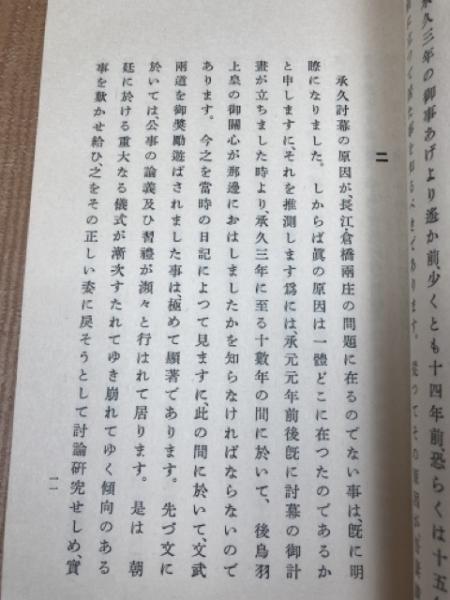 承久三年の御事あげより遙か前、少くとも十四年前、恐らくは十五
二
承久討幕の原因が、長江・倉橋兩庄の問題に在るのでない事は、既に明
瞭になりました。しからば眞の原因は一體どこに在つたのであるか
と申しますに、それを推測します爲には、承元元年前後既に討幕の御計
畫が立ちました時より、承久三年に至る十數年の間に於いて、後鳥羽
上皇の御關心が那邊におはしましたかを知らなければならないので
あります。今之を當時の日記によつて見ますに、此の間に於いて、文武
兩道を御奬勵遊ばされました事は、極めて顯著であります。先づ文に
於いては、公事の論義及ひ習禮が瀕々と行はれて居ります。是は 朝
廷に於ける重大なる儀式が漸次すたれてゆき崩れてゆく傾向のある
事を歎かせ給ひ、之をその正しい姿に戻そうとして討論研究せしめ、實
一一